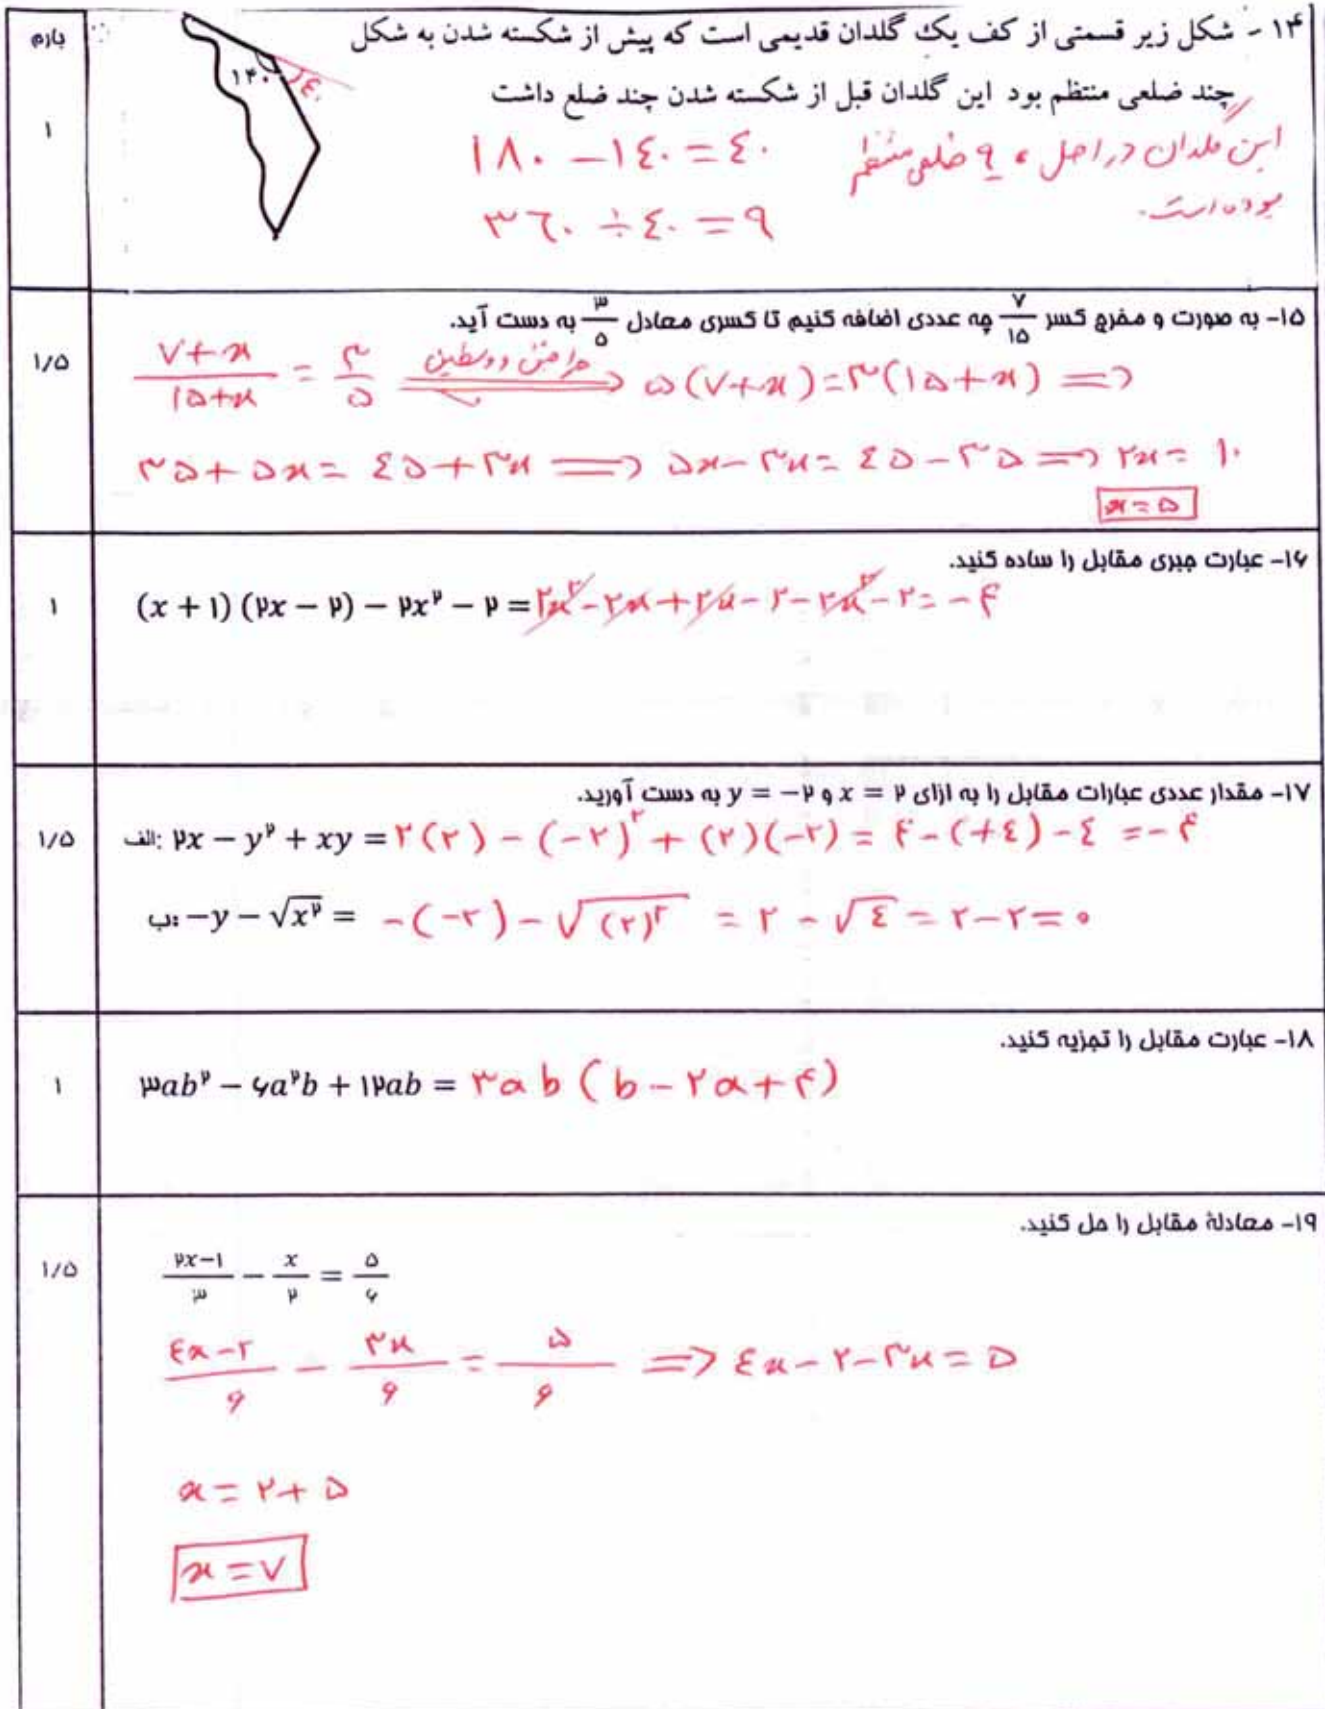 بارم
۱۴ - شکل زیر قسمتی از کف یک گلدان قدیمی است که پیش از شکسته شدن به شکل
چند ضلعی منتظم بود این گلدان قبل از شکسته شدن چند ضلع داشت
۱
۱۴۰
٤٠
این گلدان در اصل ، ۹ ضلعی منتظم
بوده است.
۱۸۰ - ۱٤۰ = ٤۰
۳۶۰ ÷ ٤۰ = ۹
۱۵- به صورت و مخرج کسر ۷/۱۵ چه عددی اضافه کنیم تا کسری معادل ۳/۵ به دست آید.
۱/۵
(۷+x)/(۱۵+x) = ۳/۵ ⟹ طرفین وسطین ۵(۷+x) = ۳(۱۵+x) ⟹
۳۵ + ۵x = ٤۵ + ۳x ⟹ ۵x - ۳x = ٤۵ - ۳۵ ⟹ ۲x = ۱۰
x = ۵
۱۶- عبارت جبری مقابل را ساده کنید.
۱
(x + ۱) (۲x - ۲) - ۲x² - ۲ = ۲x² - ۲x + ۲x - ۲ - ۲x² - ۲ = -۴
۱۷- مقدار عددی عبارات مقابل را به ازای x = ۲ و y = -۲ به دست آورید.
۱/۵
الف: ۲x - y² + xy = ۲(۲) - (-۲)² + (۲)(-۲) = ۴ - (+٤) - ٤ = -۴
ب: -y - √x² = -(-۲) - √(۲)² = ۲ - √٤ = ۲ - ۲ = ۰
۱۸- عبارت مقابل را تجزیه کنید.
۱
۳ab² - ۶a²b + ۱۲ab = ۳ab (b - ۲a + ۴)
۱۹- معادلهٔ مقابل را حل کنید.
۱/۵
(۲x-۱)/۳ - x/۲ = ۵/۶
(٤x-۲)/۶ - ۳x/۶ = ۵/۶ ⟹ ٤x - ۲ - ۳x = ۵
x = ۲ + ۵
x = ۷